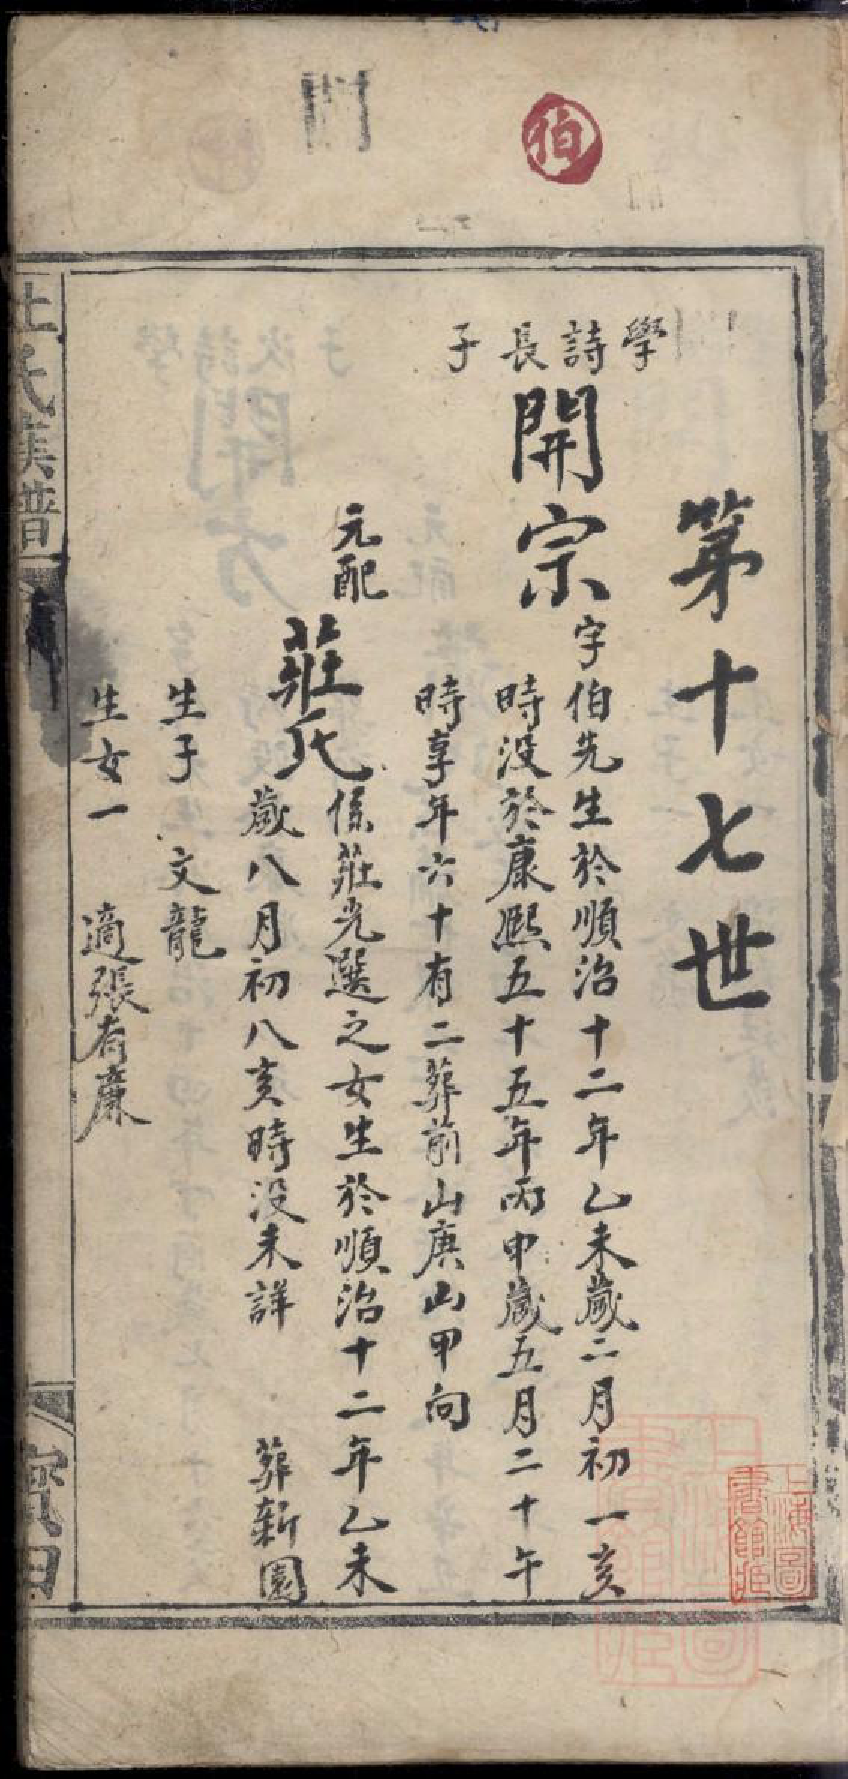 第十七世
學詩長子
開宗
字伯先生於順治十二年乙未歲二月初一亥
時没於康熙五十五年丙申歲五月二十午
時享年六十有二葬前山庚山甲向
元配
莊氏
係莊光選之女生於順治十二年乙未
歲八月初八亥時没未詳 葬新園
生子 文龍
生女一 適張有廉
氏族譜
伯
上海圖書館藏